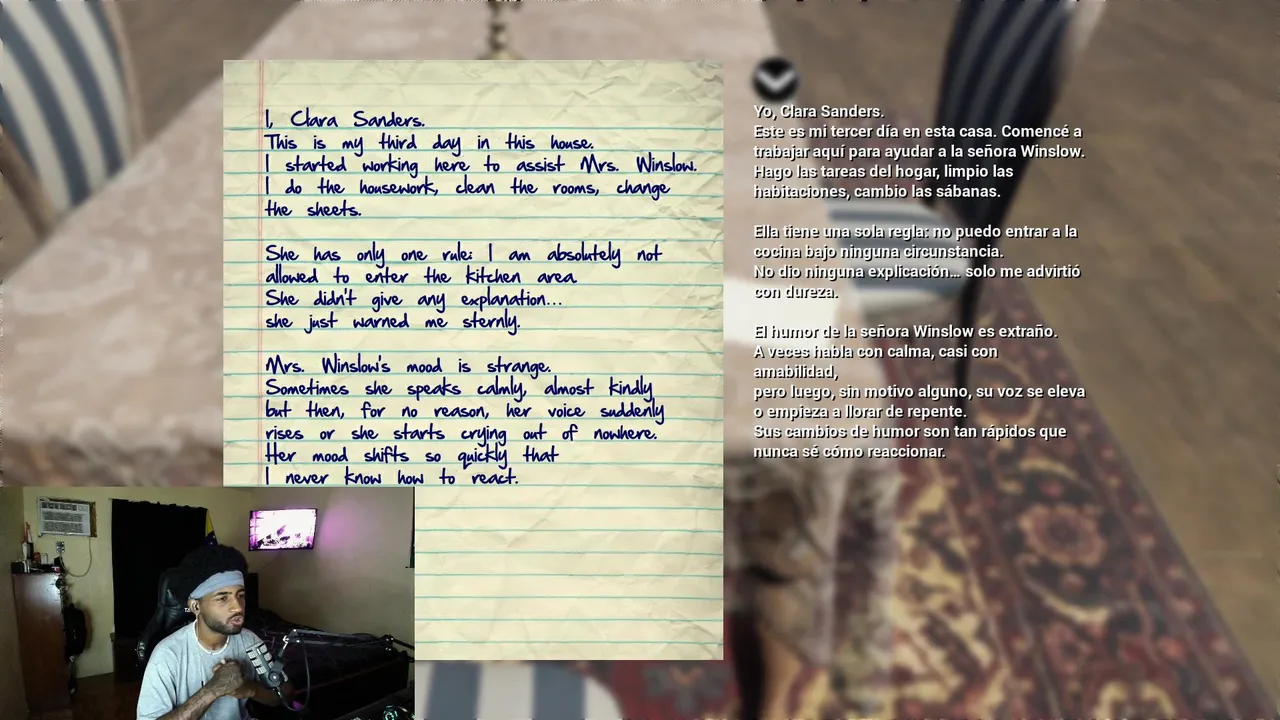 I, Clara Sanders.
This is my third day in this house.
I started working here to assist Mrs. Winslow.
I do the housework, clean the rooms, change
the sheets.
She has only one rule: I am absolutely not
allowed to enter the kitchen area.
She didn't give any explanation...
she just warned me sternly.
Mrs. Winslow's mood is strange.
Sometimes she speaks calmly, almost kindly
but then, for no reason, her voice suddenly
rises or she starts crying out of nowhere.
Her mood shifts so quickly that
I never know how to react.
Yo, Clara Sanders.
Este es mi tercer día en esta casa. Comencé a
trabajar aquí para ayudar a la señora Winslow.
Hago las tareas del hogar, limpio las
habitaciones, cambio las sábanas.
Ella tiene una sola regla: no puedo entrar a la
cocina bajo ninguna circunstancia.
No dio ninguna explicación... solo me advirtió
con dureza.
El humor de la señora Winslow es extraño.
A veces habla con calma, casi con
amabilidad,
pero luego, sin motivo alguno, su voz se eleva
o empieza a llorar de repente.
Sus cambios de humor son tan rápidos que
nunca sé cómo reaccionar.